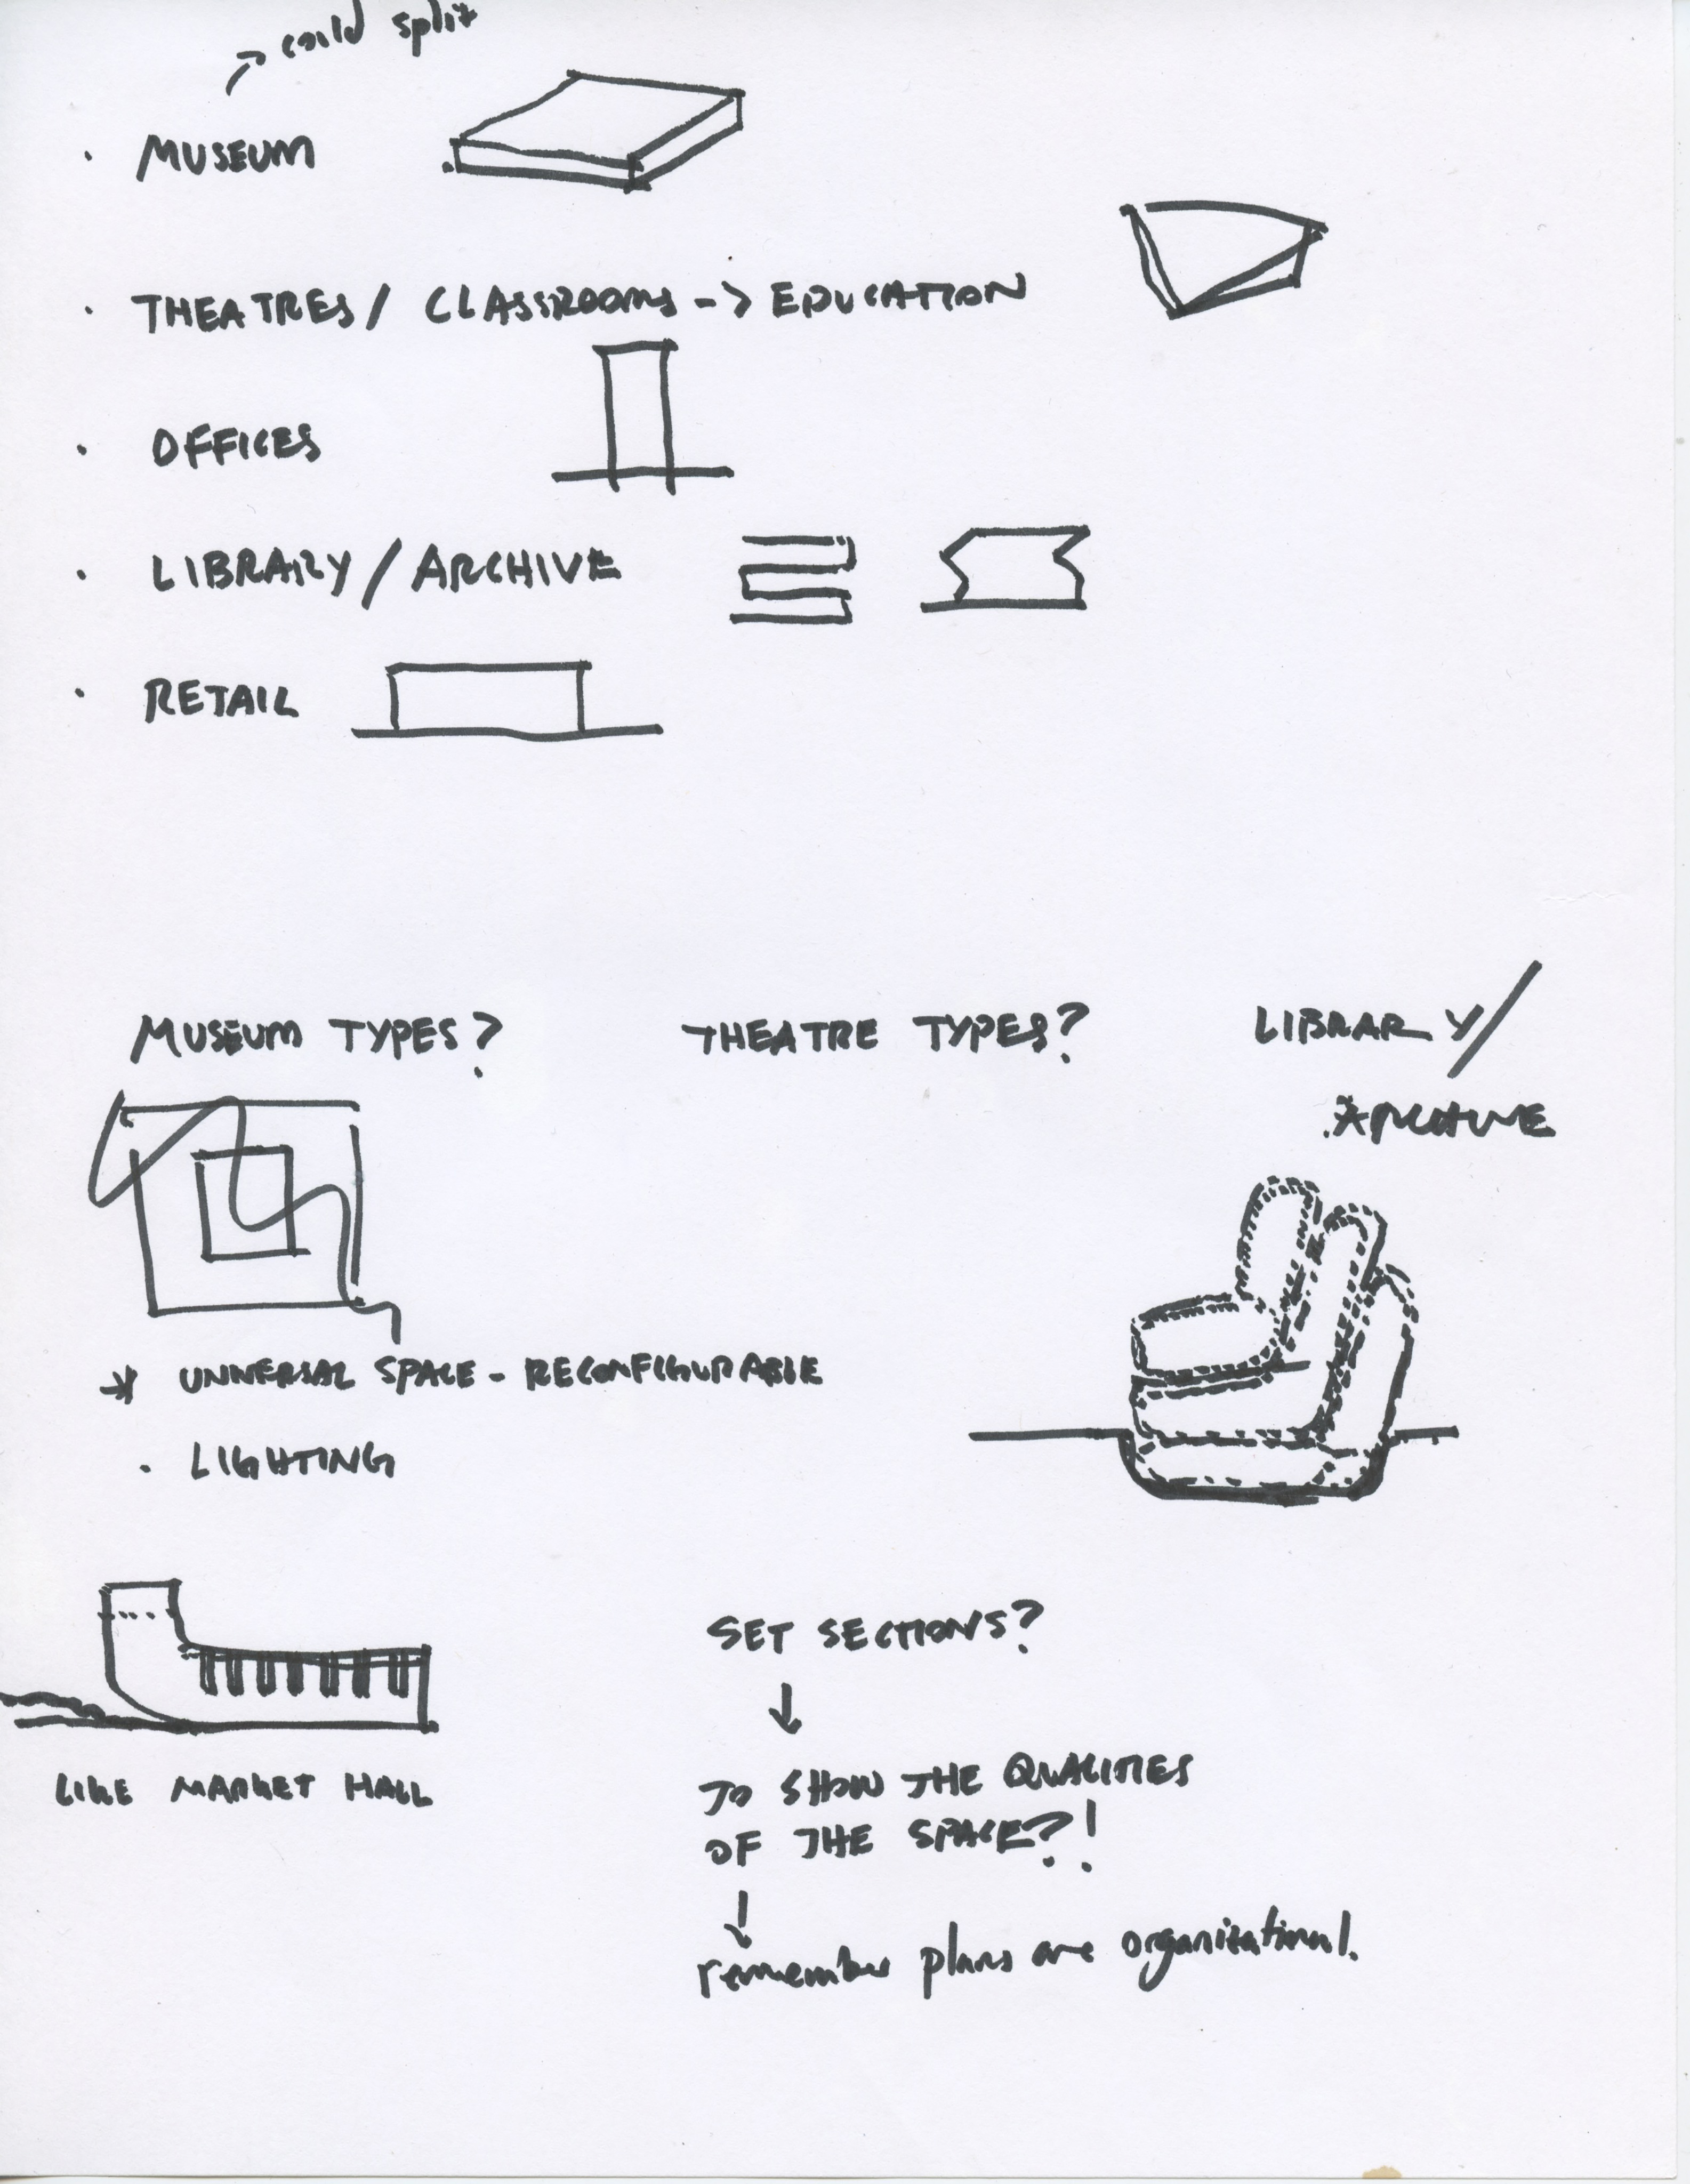 could split
• MUSEUM
• THEATRES / CLASSROOMS -> EDUCATION
• OFFICES
• LIBRARY / ARCHIVE
• RETAIL
MUSEUM TYPES?
THEATRE TYPES?
LIBRARY/
ARCHIVE
* UNIVERSAL SPACE - RECONFIGURABLE
• LIGHTING
LIKE MARKET HALL
SET SECTIONS?
↓
TO SHOW THE QUALITIES
OF THE SPACE?!
↓
remember plans are organizational.